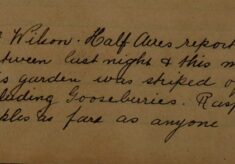 Wilson. Half Acres report
tween last night & this m
s garden was striped o
luding Gooseburies. Rasp
ples as fare as anyone